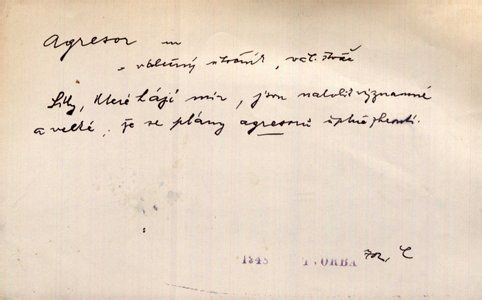 Agresor m
= válečný útočník, vál. štváč
Síly, které hájí mír, jsou natolik významné
a velké, že se plány agresorů úplně zhroutí.
1949 T. ORBA